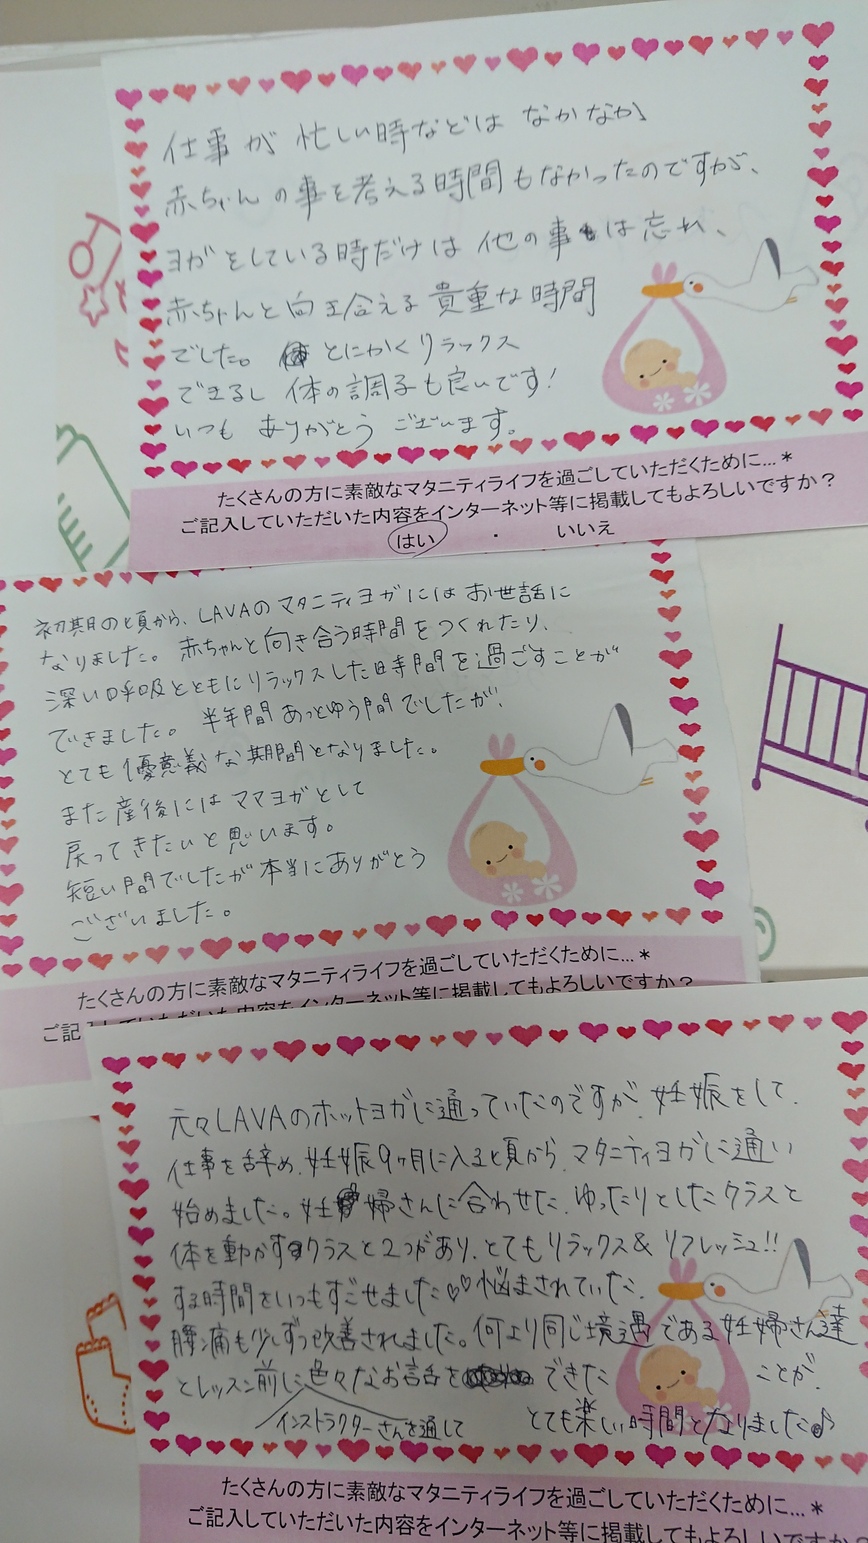 仕事が 忙しい時などは なかなか
赤ちゃんの事を考える時間もなかったのですが、
ヨガをしている時だけは 他の事は忘れ、
赤ちゃんと向き合える貴重な時間
でした。 とにかくリラックス
できるし 体の調子も良いです!
いつも ありがとう ございます。
たくさんの方に素敵なマタニティライフを過ごしていただくために…*
ご記入していただいた内容をインターネット等に掲載してもよろしいですか？
はい ・ いいえ
初期の頃から、LAVAのマタニティヨガにはお世話に
なりました。赤ちゃんと向き合う時間をつくれたり、
深い呼吸とともにリラックスした時間を過ごすことが
できました。半年間あっとゆう間でしたが、
とても優意義な期間となりました。
また産後にはママヨガとして
戻ってきたいと思います。
短い間でしたが本当にありがとう
ございました。
たくさんの方に素敵なマタニティライフを過ごしていただくために…*
ご記入していただいた内容をインターネット等に掲載してもよろしいですか？
元々LAVAのホットヨガに通っていたのですが、妊娠をして、
仕事を辞め、妊娠9ヶ月に入る頃から、マタニティヨガに通い
始めました。妊婦さんに合わせた、ゆったりとしたクラスと
体を動かすクラスと2つがあり、とてもリラックス&リフレッシュ!!
する時間をいつもすごせました♡♡悩まされていた、
腰痛も少しずつ改善されました。何より同じ境遇である妊婦さん達
とレッスン前に色々なお話を できた ことが、
インストラクターさんを通して とても楽しい時間となりました♪
たくさんの方に素敵なマタニティライフを過ごしていただくために…*
ご記入していただいた内容をインターネット等に掲載してもよろしいですか？